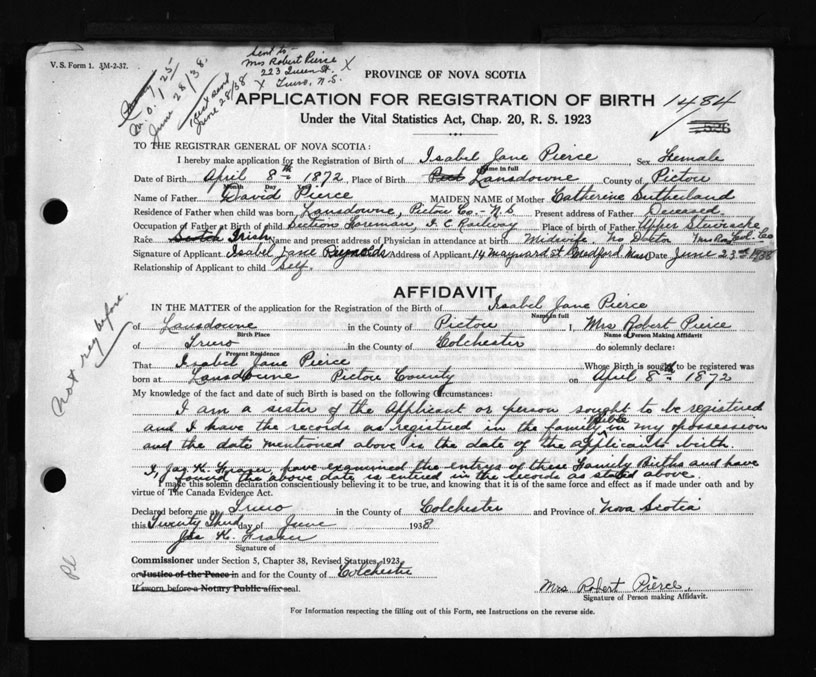 V. S. Form 1. 3M-2-37.
M.O. 1.25
June 28/38.
June 28/38
Sent to
Mrs Robert Pierce X
223 Queen St.
X Truro, N.S.
PROVINCE OF NOVA SCOTIA
APPLICATION FOR REGISTRATION OF BIRTH 1484
Under the Vital Statistics Act, Chap. 20, R. S. 1923
526
TO THE REGISTRAR GENERAL OF NOVA SCOTIA:
I hereby make application for the Registration of Birth of Isabel Jane Pierce Sex Female
Name in full
Date of Birth April 8th 1872 Place of Birth Lansdowne County of Pictou
Month Day Year
Name of Father David Pierce MAIDEN NAME of Mother Catherine Sutherland
Residence of Father when child was born Lansdowne, Pictou Co. - N.S Present address of Father Deceased
Occupation of Father at Birth of child Section Foreman, I. C. Railway Place of Birth of Father Upper Stewiacke
Race Scotch Irish Name and present address of Physician in attendance at birth Midwife No Doctor Col. Co
Signature of Applicant Isabel Jane Reynolds Address of Applicant 14 Maynard St Medford Mass Date June 23rd 1938
Relationship of Applicant to child Self.
AFFIDAVIT
IN THE MATTER of the application for the Registration of the Birth of Isabel Jane Pierce
Name in full
of Lansdowne in the County of Pictou I, Mrs Robert Pierce
Birth Place Name of Person Making Affidavit
of Truro in the County of Colchester do solemnly declare:
Present Residence
That Isabel Jane Pierce Whose Birth is sought to be registered was
born at Lansdowne Pictou County on April 8th 1872
Not reg before.
My knowledge of the fact and date of such Birth is based on the following Circumstances:
I am a sister of the Applicant or person sought to be registered
and I have the records as registered in the family Bible in my possession
and the date mentioned above is the date of the applicants birth.
I, Jas. K. Fraser, have examined the entrys of these Family Births and have
found the above date is entered in the records as stated above.
I make this solemn declaration conscientiously believing it to be true, and knowing that it is of the same force and effect as if made under oath and by
virtue of The Canada Evidence Act.
Declared before me at Truro in the County of Colchester and Province of Nova Scotia
this Twenty Third day of June 1938
Jas K. Fraser
Signature of
Commissioner under Section 5, Chapter 38, Revised Statutes, 1923
or Justice of the Peace in and for the County of Colchester
If sworn before a Notary Public affix seal.
Mrs Robert Pierce.
Signature of Person making Affidavit.
For Information respecting the filling out of this Form, see Instructions on the reverse side.